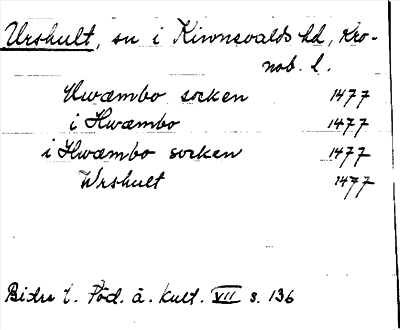 Urshult, sn i Kinnevalds hd, Kro-
nob. l.
Hwæmbo socken 1477
i Hwæmbo 1477
i Hwæmbo socken 1477
Wrshult 1477
Bidr t. Söd. ä. kult. VII s. 136